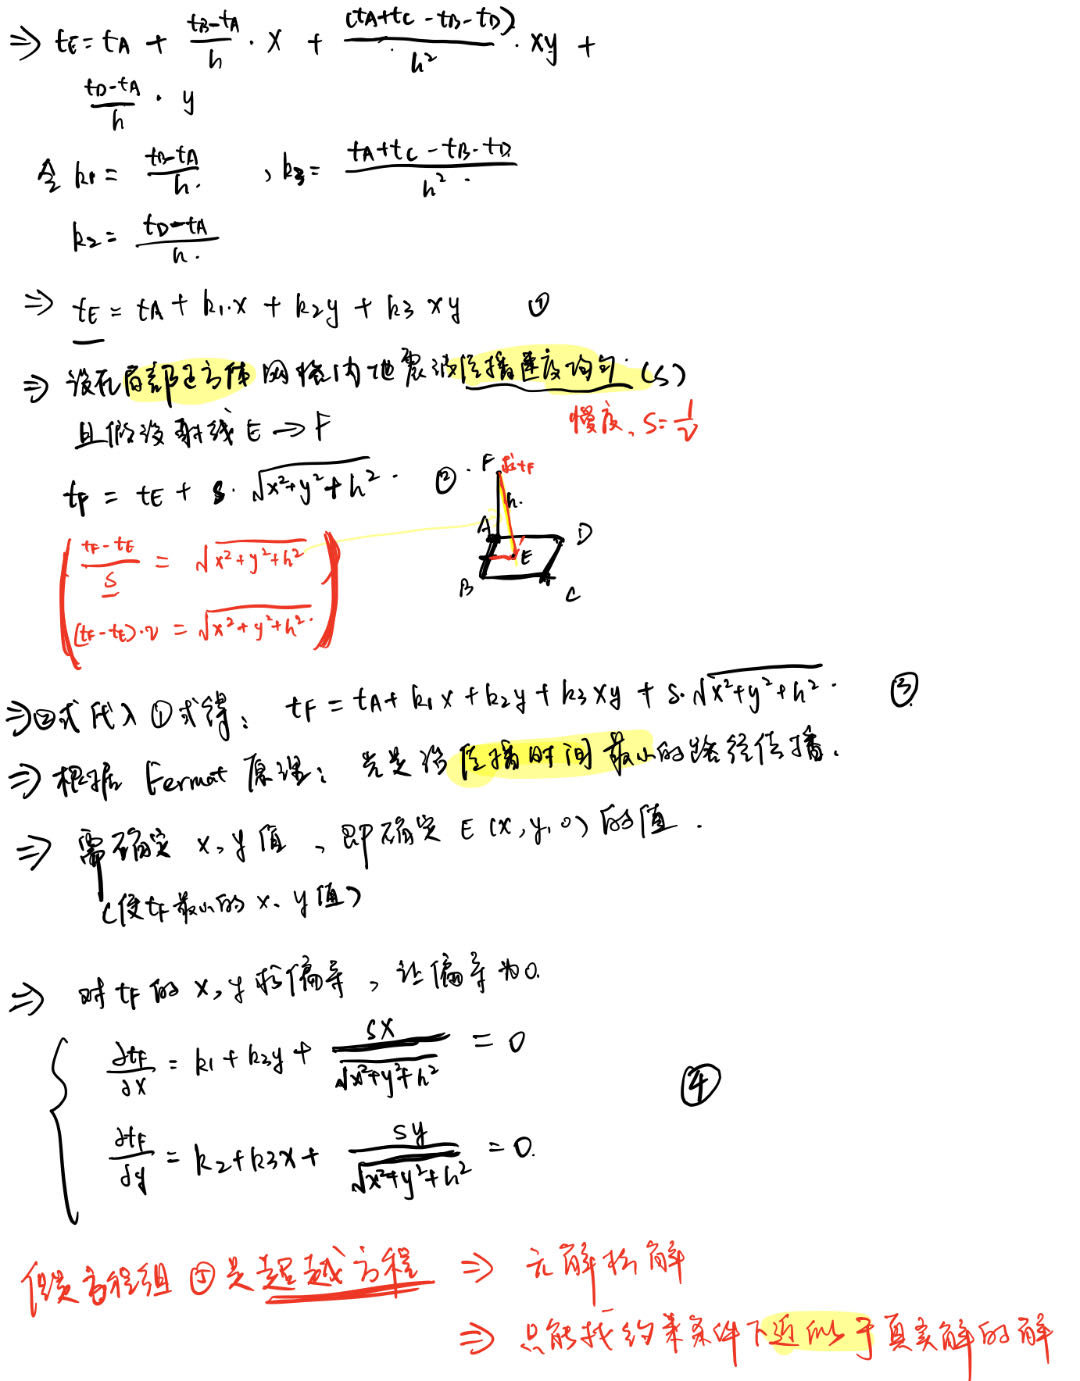 ⇒ tE = tA + (tB-tA)/h · x + (tA+tC-tB-tD)/h² · xy +
(tD-tA)/h · y
令 k1 = (tB-tA)/h. , k3 = (tA+tC-tB-tD)/h².
k2 = (tD-tA)/h.
⇒ tE = tA + k1·x + k2y + k3 xy ①
⇒ 设在局部正方体网格内地震波传播速度均匀·(s)
慢度、s=1/v
且假设射线 E → F
tF = tE + s·√(x²+y²+h²) · ②
F 求tF
h.
A D
E
B C
(tF-tE)/s = √(x²+y²+h²)
(tF-tE)·v = √(x²+y²+h²)·
⇒②式代入①式得: tF = tA + k1x + k2y + k3xy + s·√(x²+y²+h²) · ③
⇒ 根据 Fermat 原理: 光是沿传播时间最小的路径传播.
⇒ 需确定 x, y值 , 即确定 E(x, y, 0) 的值 .
(使tF最小的 x、y值)
⇒ 对 tF 的 x, y 求偏导, 让偏导为0.
∂tF/∂x = k1 + k3y + sx/√(x²+y²+h²) = 0
④
∂tF/∂y = k2 + k3x + sy/√(x²+y²+h²) = 0.
方程组 ⑤ 是超越方程 ⇒ 无解析解
⇒ 只能找约束条件下近似于真实解的解